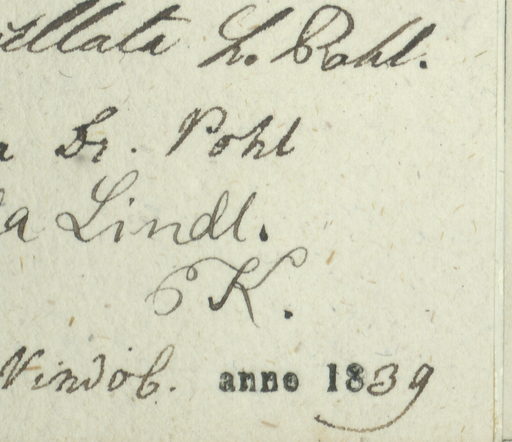 ellata h. Pohl.
a Dr. Pohl
a Lindl.
K.
Vindob. anno 1839